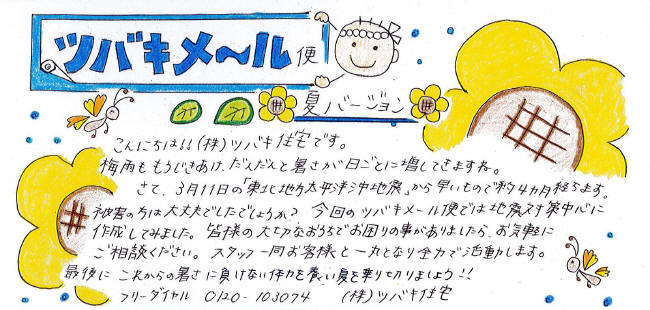 ツバキメ～ル便
夏バージョン
こんにちは!!(株)ツバキ住宅です。
梅雨ももうじきあけ、だんだんと暑さが日ごとに増してきますね。
さて、3月11日の「東北地方太平洋沖地震」から早いもので約4カ月経ちます。
被害の方は大丈夫でしたでしょうか? 今回のツバキメール便では地震対策中心に
作成してみました。皆様の大切なおうちでお困りの事がありましたら、お気軽に
ご相談ください。スタッフ一同お客様と一丸となり全力で活動します。
最後に これからの暑さに負けない体力を養い夏を乗り切りましょう!!
フリーダイヤル 0120-103074 (株)ツバキ住宅